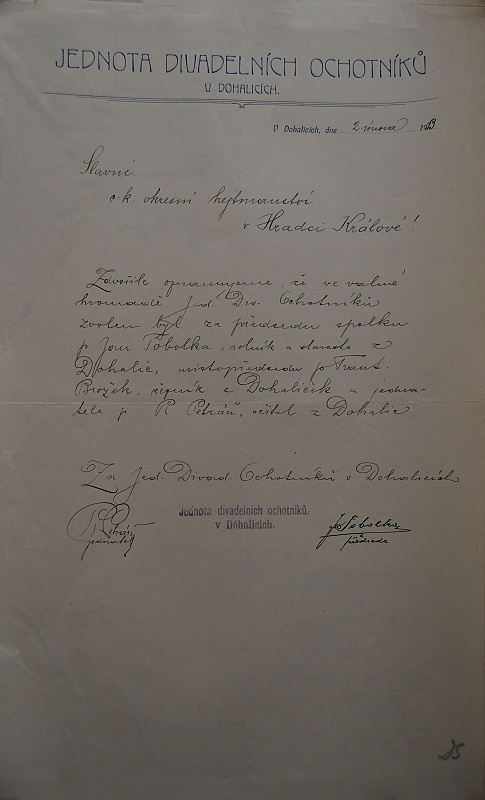 JEDNOTA DIVADELNÍCH OCHOTNÍKŮ
V DOHALICÍCH.
V Dohalicích, dne 2 února 1913
Slavné
c. k. okresní hejtmanství
v Hradci Králové!
Zdvořile oznamujeme, že ve valné
hromadě Jed. Div. Ochotníků
zvolen byl za předsedu spolku
p Jan Sobotka, rolník a starosta z
Dohalic, místopředsedu p Frant.
Brožek, řezník z Dohaliček a jedna-
tele p R. Petráň, učitel z Dohalic.
Za Jed. Divad. Ochotníků v Dohalicích
Jednota divadelních ochotníků
v Dohalicích.
R Petráň
jednatel
J Sobotka
předseda